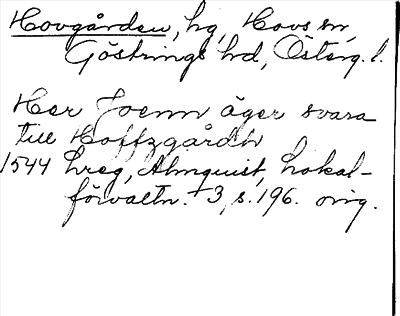 Hovgården, hg, Hovs sn,
Göstrings hd, Österg. l.
Her Joenn äger svara
till Hoffzgårdh
1544 hreg, Almquist, Lokal-
förvaltn. 3, s. 196. orig.